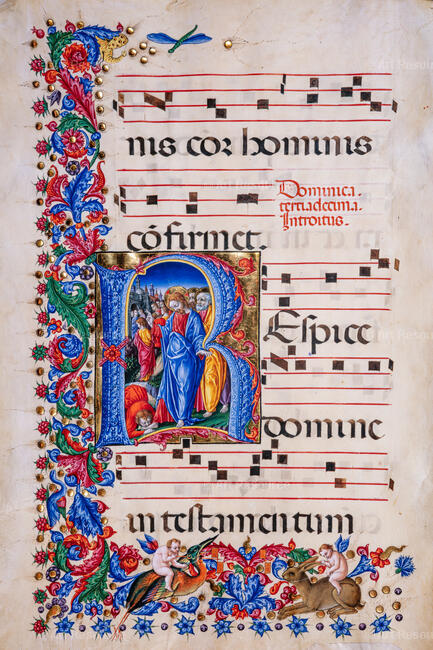 nis cor hominis
Dominica.
tertiadecima.
Introitus.
cōfirmet.
REspice
domine
in testamentum